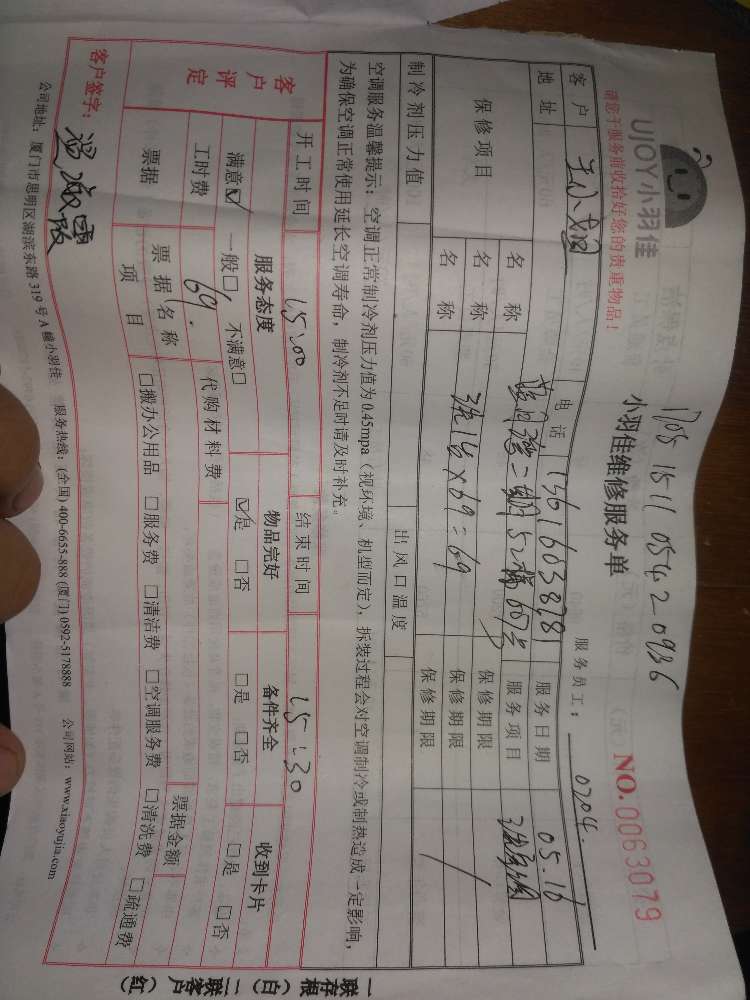 UJOY小羽佳
1705 1511 0542 0936
小羽佳维修服务单
NO.0063079
请您于服务前收拾好您的贵重物品！
服务员工： 0204.
客户 电话 服务日期 05.16
地址 服务项目
保修项目 名称 保修期限
名称 洗 69=69 保修期限
名称 保修期限
制冷剂压力值 出风口温度
空调服务温馨提示：空调正常制冷剂压力值为0.45mpa（视环境、机型而定），拆装过程会对空调制冷或制热造成一定影响，
为确保空调正常使用延长空调寿命，制冷剂不足时请及时补充。
开工时间 15:00 结束时间 15:30
客户评定
服务态度 物品完好 备件齐全 收到卡片
满意☑ 一般□ 不满意□ ☑是 □否 □是 □否 □是 □否
工时费 69. 代购材料费
票据 票据名称 票据金额
项目 □搬办公用品 □服务费 □清洁费 □空调服务费 □清洗费 □疏通费
客户签字：
公司地址：厦门市思明区湖滨东路 319 号 A 幢小羽佳 服务热线：(全国) 400-6655-888 (厦门) 0592-5178888 公司网站：www.xiaoyujia.com
一联存根（白）二联客户（红）